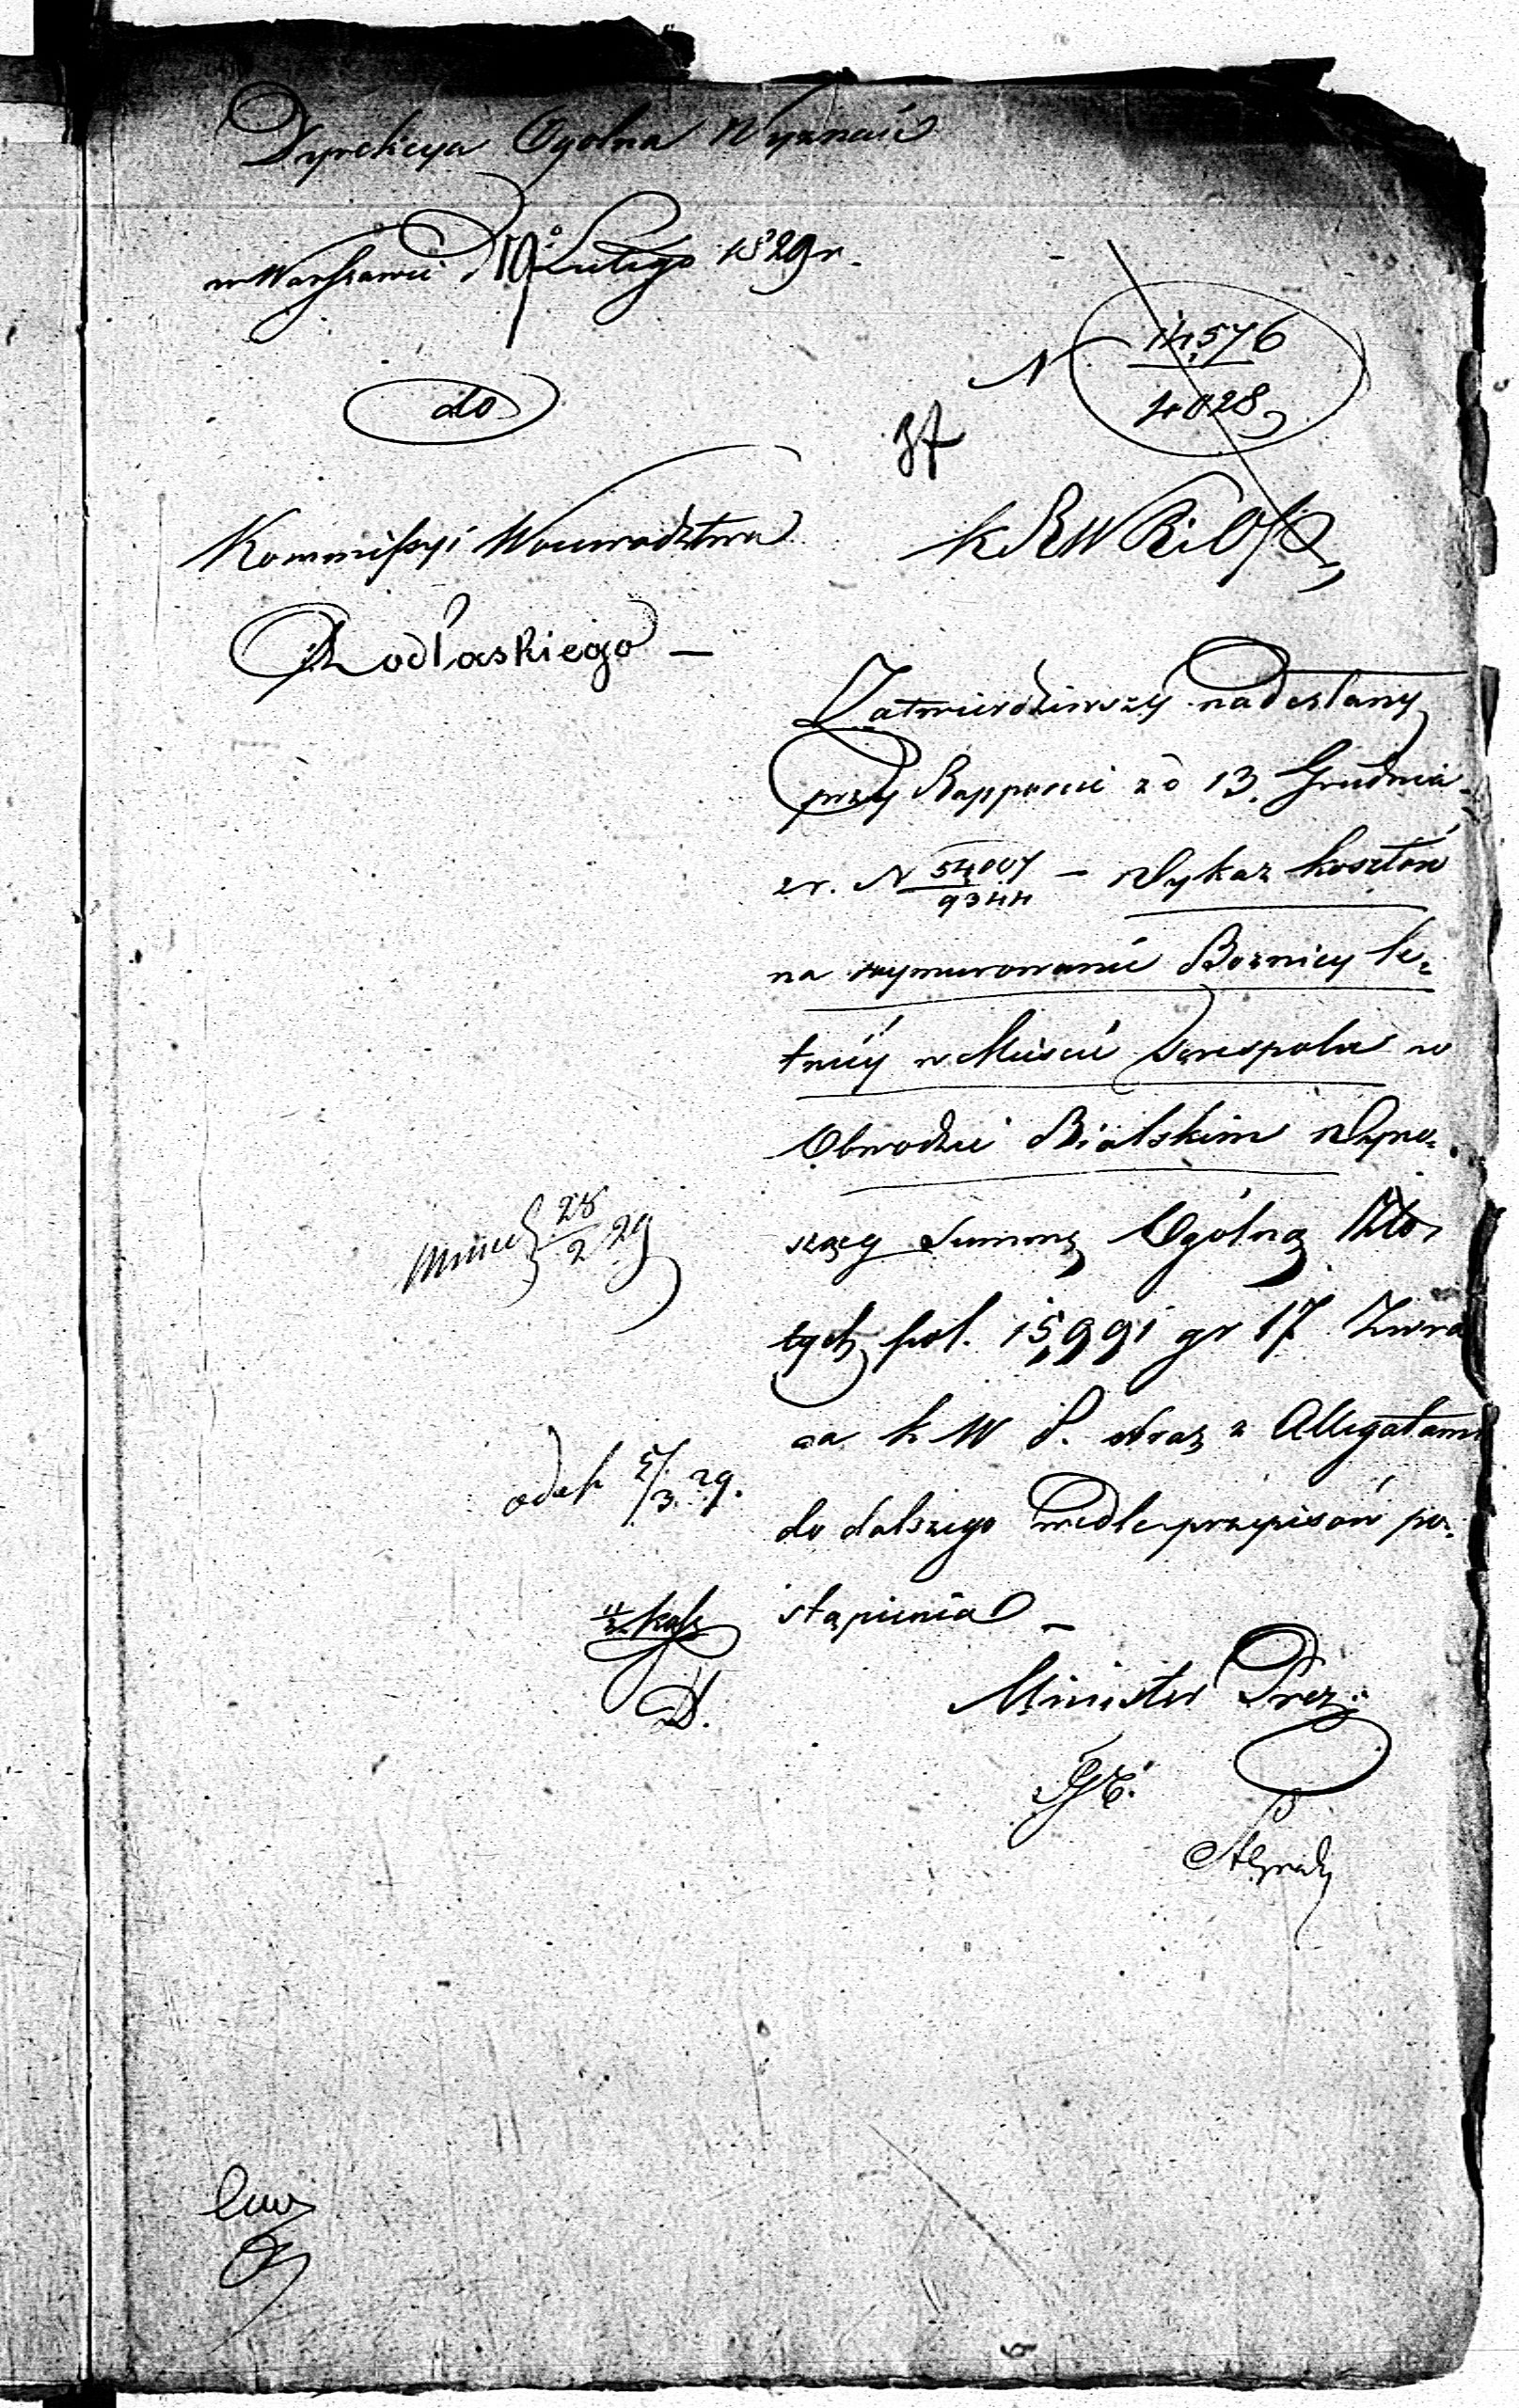 Dyrekcya Ogolna Wyznań
w Warszawie D 19 Lutego 1829 r.
N 14,576
4028
do
37
Kommissyi Woiewodztwa
Podlaskiego —
K R W R i O P
Zatwierdziwszy nadesłany
przy Rapporcie z d 13. Grudnia
z r. N 54007 / 9344 — Wykaz kosztów
na wymurowanie Boznicy le=
tniéy w Mieście Terespolu w
Obwodzie Bialskim Wyno=
szący Summę Ogólną Zło
tych pol. 15,991 gr 17 Zwra
ca K W P. wraz z Allegatami
do dalszego wedle przepisów po=
stąpienia —
28/2 29
5/3. 29.
Minister Prez: